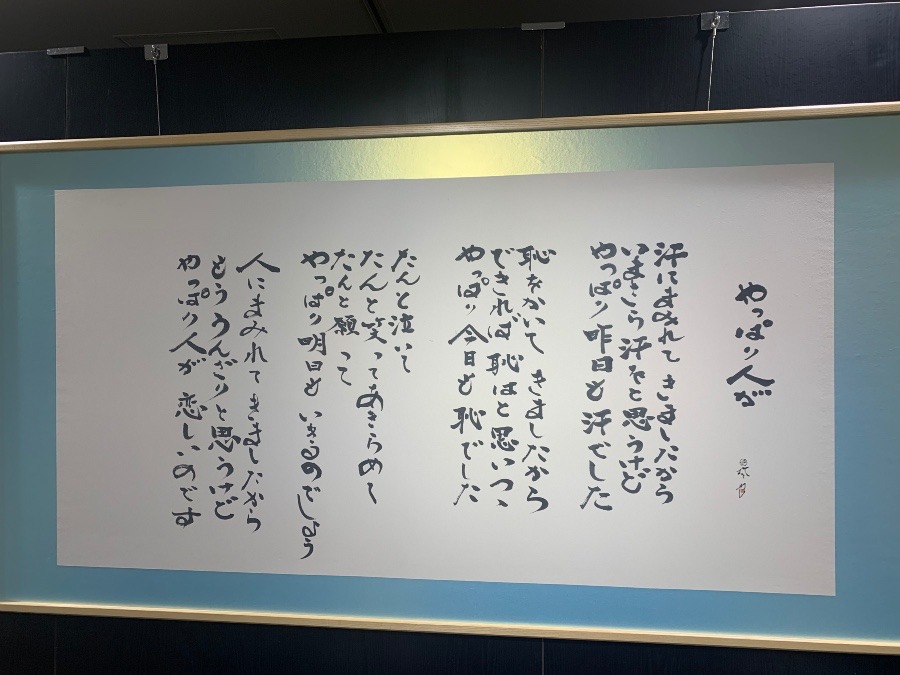 やっぱり人が
汗にまみれて きましたから
いまさら 汗をと思うけど
やっぱり 昨日も 汗でした
恥をかいて きましたから
できれば 恥はと思いつゝ
やっぱり 今日も 恥でした
たんと泣いて
たんと笑って あきらめて
たんと願って
やっぱり 明日も いきるのでしょう
人にまみれて きましたから
もううんざりと思うけど
やっぱり人が 恋しいのです